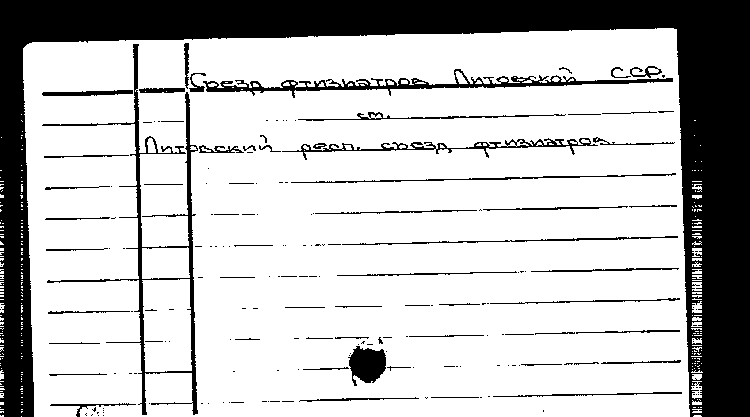 Съезд фтизиатров Литовской ССР.
см.
Литовский респ. съезд фтизиатров.